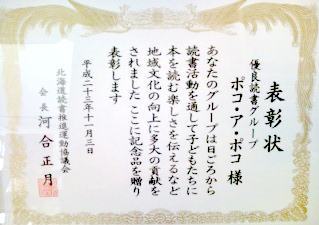 表彰状
優良読書グループ
ポコ・ア・ポコ 様
あなたのグループは日ごろから
読書活動を通して子どもたちに
本を読む楽しさを伝えるなど
地域文化の向上に多大の貢献を
されました ここに記念品を贈り
表彰します
平成二十三年十一月三日
北海道読書推進運動協議会
会長 河合正月